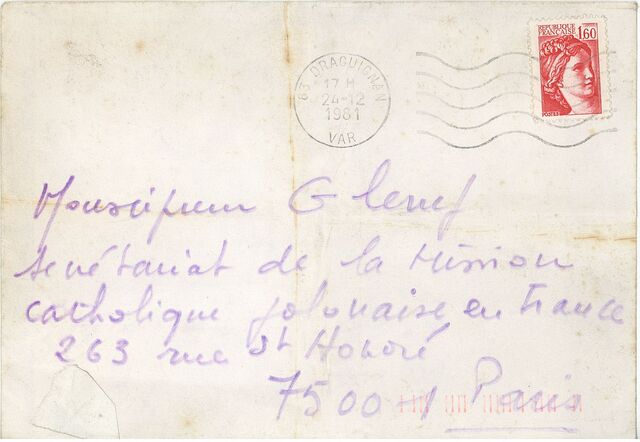 REPUBLIQUE
FRANÇAISE
1,60
POSTES
83 DRAGUIGNAN
17 H
24-12
1981
VAR
secrétariat de la Mission
catholique polonaise en France
263 rue St Honoré
75001 Paris